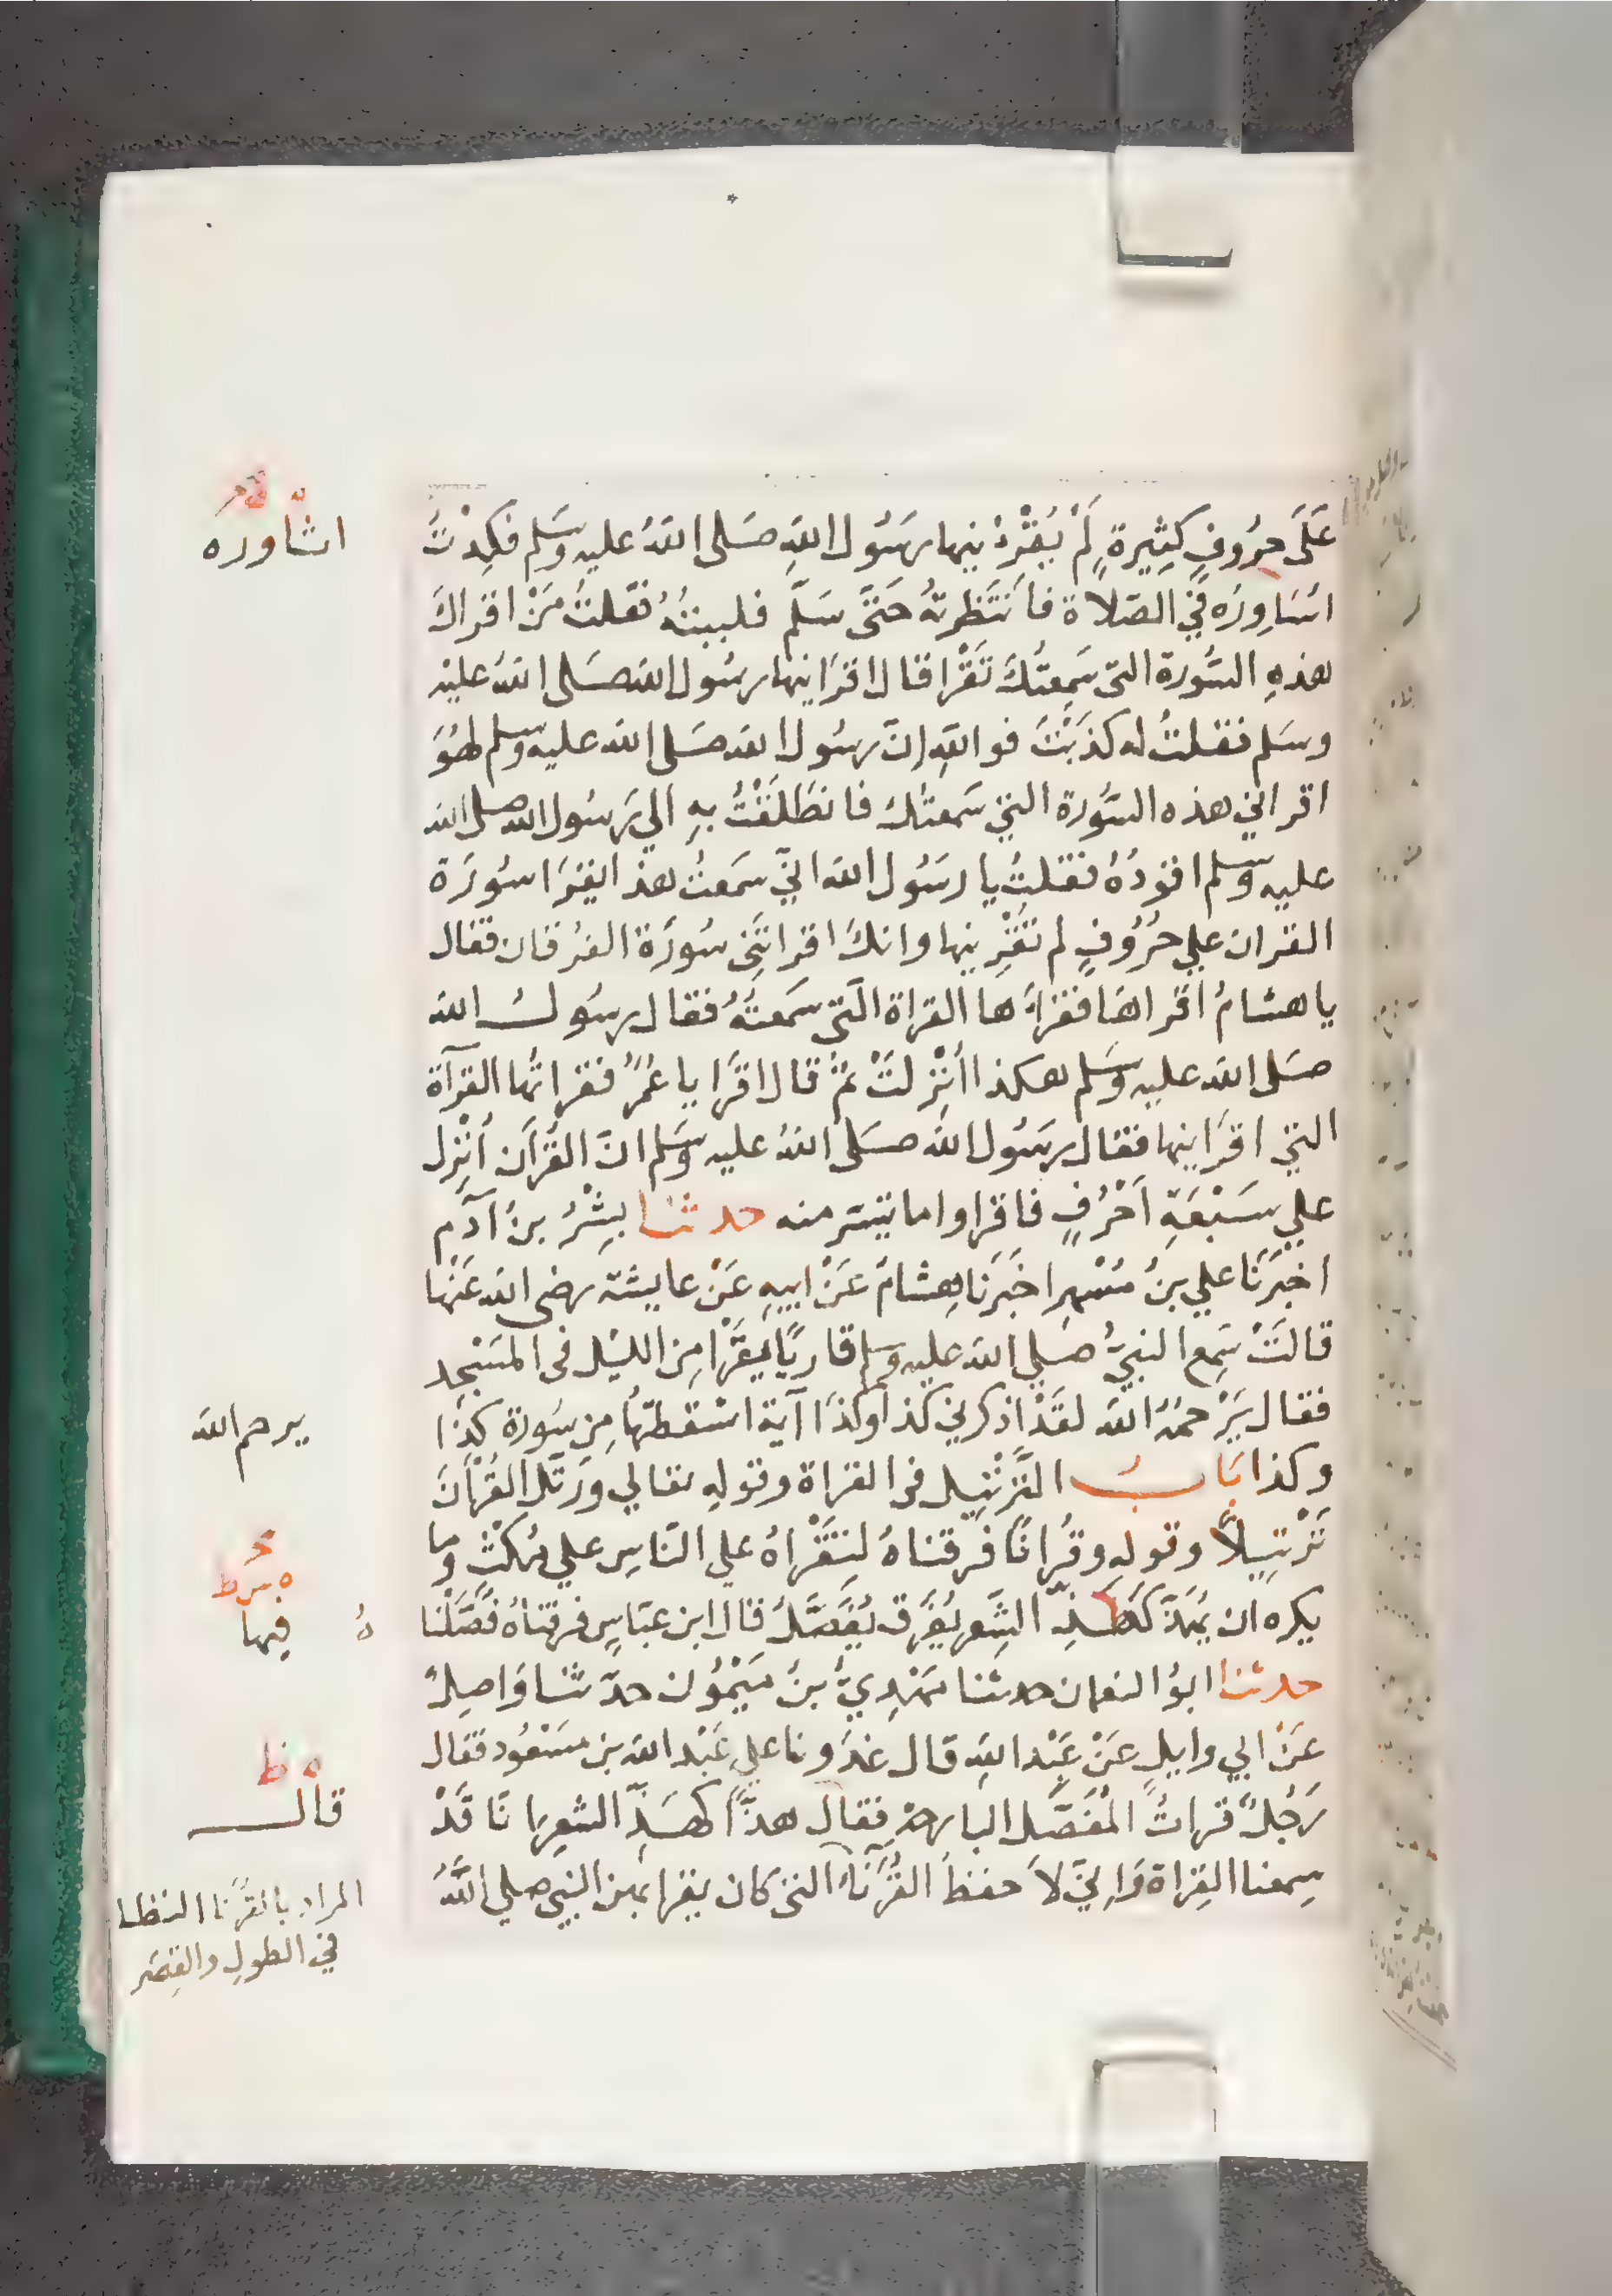 عَلَى حرُوفٍ كثِيرةٍ لَمْ يُقْرِئْنيها رسُول اللهِ صَلى اللهُ عليه وسَلم فكِدْتُ
اسَاوِرُه في الصّلاة فانتَظرتهُ حَتى سَلّم فلببتهُ فقلتُ مَنْ اقراكَ
هذهِ السُّورة التى سَمِعتُكَ تَقْرا قال اقرَانيها رسُول الله صَلى اللهُ عليْه
وسَلم فقلتُ له كذَبْتَ فوالله إنّ رسُول الله صَلى الله عليه وسلم لهُوَ
اقراني هذه السُّورة التي سَمعتُكَ فانطَلَقْتُ بهِ الي رَسُول الله صلى الله
عليه وسلم اقودُهُ فقلتُ يا رسَُول الله انيّ سَمعتُ هذا يقرَا سُورَة
الفرقان علي حُرُوفٍ لم تُقْرِئنيها وانكَ اقراتَنِى سُورَة الفُرقان فقال
يا هشامُ اقراهَا فقرَاَها القراة الّتى سَمعتُهُ فقال رسُولُ الله
صَلى الله عليه وسَلم هكذا أُنْزِلَتْ ثمّ قال اقرَا يا عُمَرُ فقراتُها القرآة
التي اقرَانيها فقال رسَُول الله صَلى اللهُ عليه وسَلم انّ القُرآن أُنْزِل
علي سَبْعَةِ اَحْرُفٍ فاقراوا ما تيسّر منه حدثنا بِشْرُ بنُ آدَم
اخبَرنَا علي بنُ مُسْهِر اخبَرَنا هِشامٌ عَنْ ابيهِ عَنْ عايشة رضى الله عَنْها
قالَتْ سَمِع النبيُّ صَلي الله عليه وسلم قاريًا يَقْرَا مِن الليْل فى المسَْجِد
فقال يَرْحَمُهُ الله لقَدْ اذكرني كذا وكذَا آية اسْقطتهُا مِن سُورة كذَا
وكذا بَابُ التَّرْتِيل فى القراة وقولهِ تعالي ورَتّل القُرْآنَ
تَرْتيلًا وقوله وقُرانًا فرقناهُ لِتَقْراهُ علي النّاسِ علي مُكْثٍ وما
يكره ان يُهَذّ كهَذِّ الشِّعر يُفْرَق يُفَصَّلُ قال ابن عبّاسٍ فرقناهُ فَصَّلْنا
حدثنا ابوُ النعمان حدثنا مَهْدِيُّ بنُ مَيْمُون حدّثنا وَاصِلٌ
عَنْ ابي وايلٍ عَنْ عَبْد اللهِ قال غدَونا علي عَبْد الله بن مسَْعُود فقال
رَجُلٌ قراتُ المُفَصَّل البارحة فقال هذًّا كهَذِّ الشِعرِ انَا قَدْ
سِمعنا القِراة وَاِنيّ لاَحفظُ القُرَنَاءَ التى كان يقرا بهن النبي صلي اللهُ
اشاوره
يرحم الله
فيها
هُ
قال
المراد بالقُرَنا النظا
في الطول والقِصَر